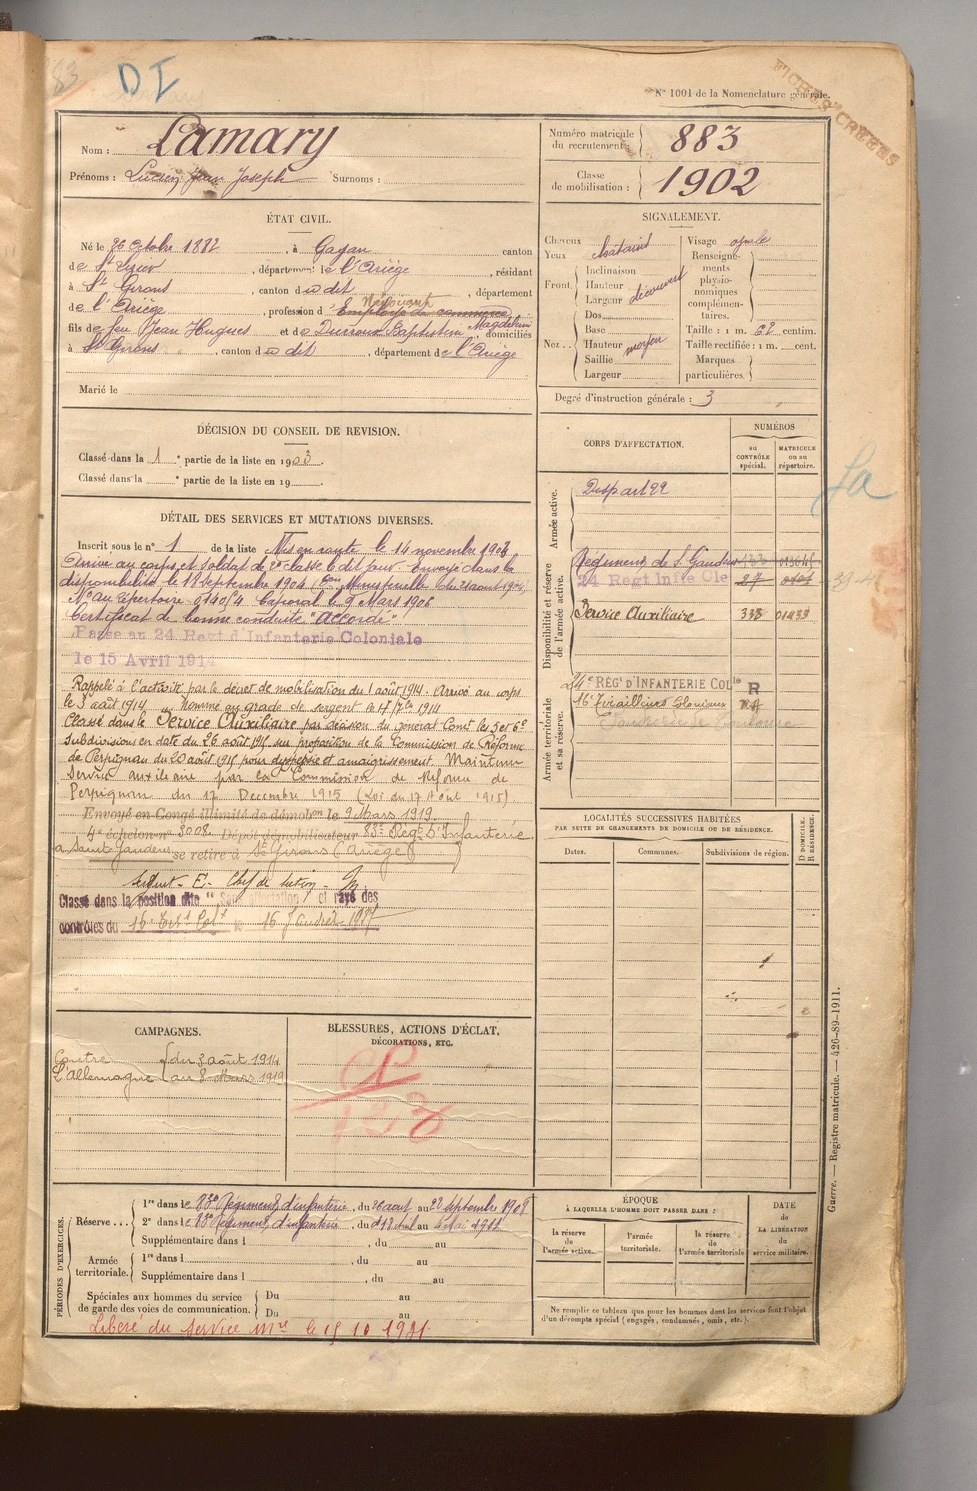 83
D I
N° 1001 de la Nomenclature générale.
FICHES CREEES
Nom : Lamary
Prénoms : Lucien Jean Joseph Surnoms :
Numéro matricule
du recrutement : 883
Classe
de mobilisation : 1902
ÉTAT CIVIL.
Né le 26 Octobre 1882, à Gajan canton
de St Lizier, département de l'Ariège, résidant
à St Girons, canton du dit, département
de l'Ariège, profession d' Employé de commerce Négociant
fils de feu Jean Hugues et de Baptistine Magdeleine domiciliés
à St Girons, canton du dit, département de l'Ariège
Marié le
SIGNALEMENT.
Cheveux châtains
Yeux
Front Inclinaison
Hauteur
Largeur découvert
Nez Dos
Base
Hauteur moyen
Saillie
Largeur
Visage ovale
Renseigne-
ments
physio-
nomiques
complémen-
taires.
Taille : 1 m. 62 centim.
Taille rectifiée : 1 m. cent.
Marques
particulières.
Degré d'instruction générale : 3
DÉCISION DU CONSEIL DE REVISION.
Classé dans la 1e partie de la liste en 1903.
Classé dans la e partie de la liste en 19
DÉTAIL DES SERVICES ET MUTATIONS DIVERSES.
Inscrit sous le n° 1 de la liste Mis en route le 14 novembre 1903
Arrivé au corps et soldat de 2e classe le dit jour. Envoyé dans la
disponibilité le 18 septembre 1904
N° au répertoire 01404 Caporal le 9 Mars 1906
Certificat de bonne conduite "Accordé"
Passé au 24 Regt d'Infanterie Coloniale
le 15 Avril 1914
Rappelé à l'activité par le décret de mobilisation du 1 août 1914. Arrivé au corps
le 3 août 1914 Nommé au grade de sergent le 17 7bre 1914
Classé dans le Service Auxiliaire par décision du général Comt les 5 et 6e
subdivisions en date du 26 août 1915 sur proposition de la Commission de Réforme
de Perpignan du 20 août 1915 pour dyspepsie et amaigrissement. Maintenu
service auxiliaire par la Commission de Réforme de
Perpignan du 17 Decembre 1915 (Loi du 17 Août 1915)
Envoyé en Congé illimité de démobon le 9 Mars 1919.
4e échelon n° 3008. Dépôt démobilisateur 83e Regt d'Infanterie
à Saint Gaudens se retire à St Girons (Ariège)
Chef de section
Classé dans la position dite "Sans affectation" et rayé des
contrôles du 16 le 16 1927
CORPS D'AFFECTATION.
NUMÉROS
au
CONTRÔLE
spécial.
MATRICULE
ou au
répertoire.
Armée active.
Disponibilité et réserve
de l'armée active.
Régiment de St Gaudens
24 Regt Infie Cle 27
Service Auxiliaire 01433
Armée territoriale
et sa réserve.
24e RÉGt D'INFANTERIE COLle R
16e Tirailleurs Coloniaux
La
LOCALITÉS SUCCESSIVES HABITÉES
PAR SUITE DE CHANGEMENTS DE DOMICILE OU DE RÉSIDENCE.
D DOMICILE.
R RÉSIDENCE.
Dates.
Communes.
Subdivisions de région.
CAMPAGNES.
Contre
L'Allemagne
du 3 août 1914
au 8 Mars 1919
BLESSURES, ACTIONS D'ÉCLAT,
DÉCORATIONS, ETC.
PÉRIODES D'EXERCICES.
Réserve...
1re dans le 83e Régiment d'infanterie, du 26 aout au 22 Septembre 1908
2e dans le 83e Régiment d'infanterie, du 18 Avril au 4 Mai 1911
Supplémentaire dans l , du au
Armée
territoriale.
1re dans l , du au
Supplémentaire dans l , du au
Spéciales aux hommes du service
de garde des voies de communication.
Du au
Du au
Libéré du Service Mre le 15 10 1931
ÉPOQUE
À LAQUELLE L'HOMME DOIT PASSER DANS :
la réserve
de
l'armée active.
l'armée
territoriale.
la réserve
de
l'armée territoriale
DATE
de
LA LIBÉRATION
du
service militaire.
Ne remplir ce tableau que pour les hommes dont les services font l'objet
d'un décompte spécial (engagés, condamnés, omis, etc.).
Guerre. — Registre matricule. — 426-89-1911.